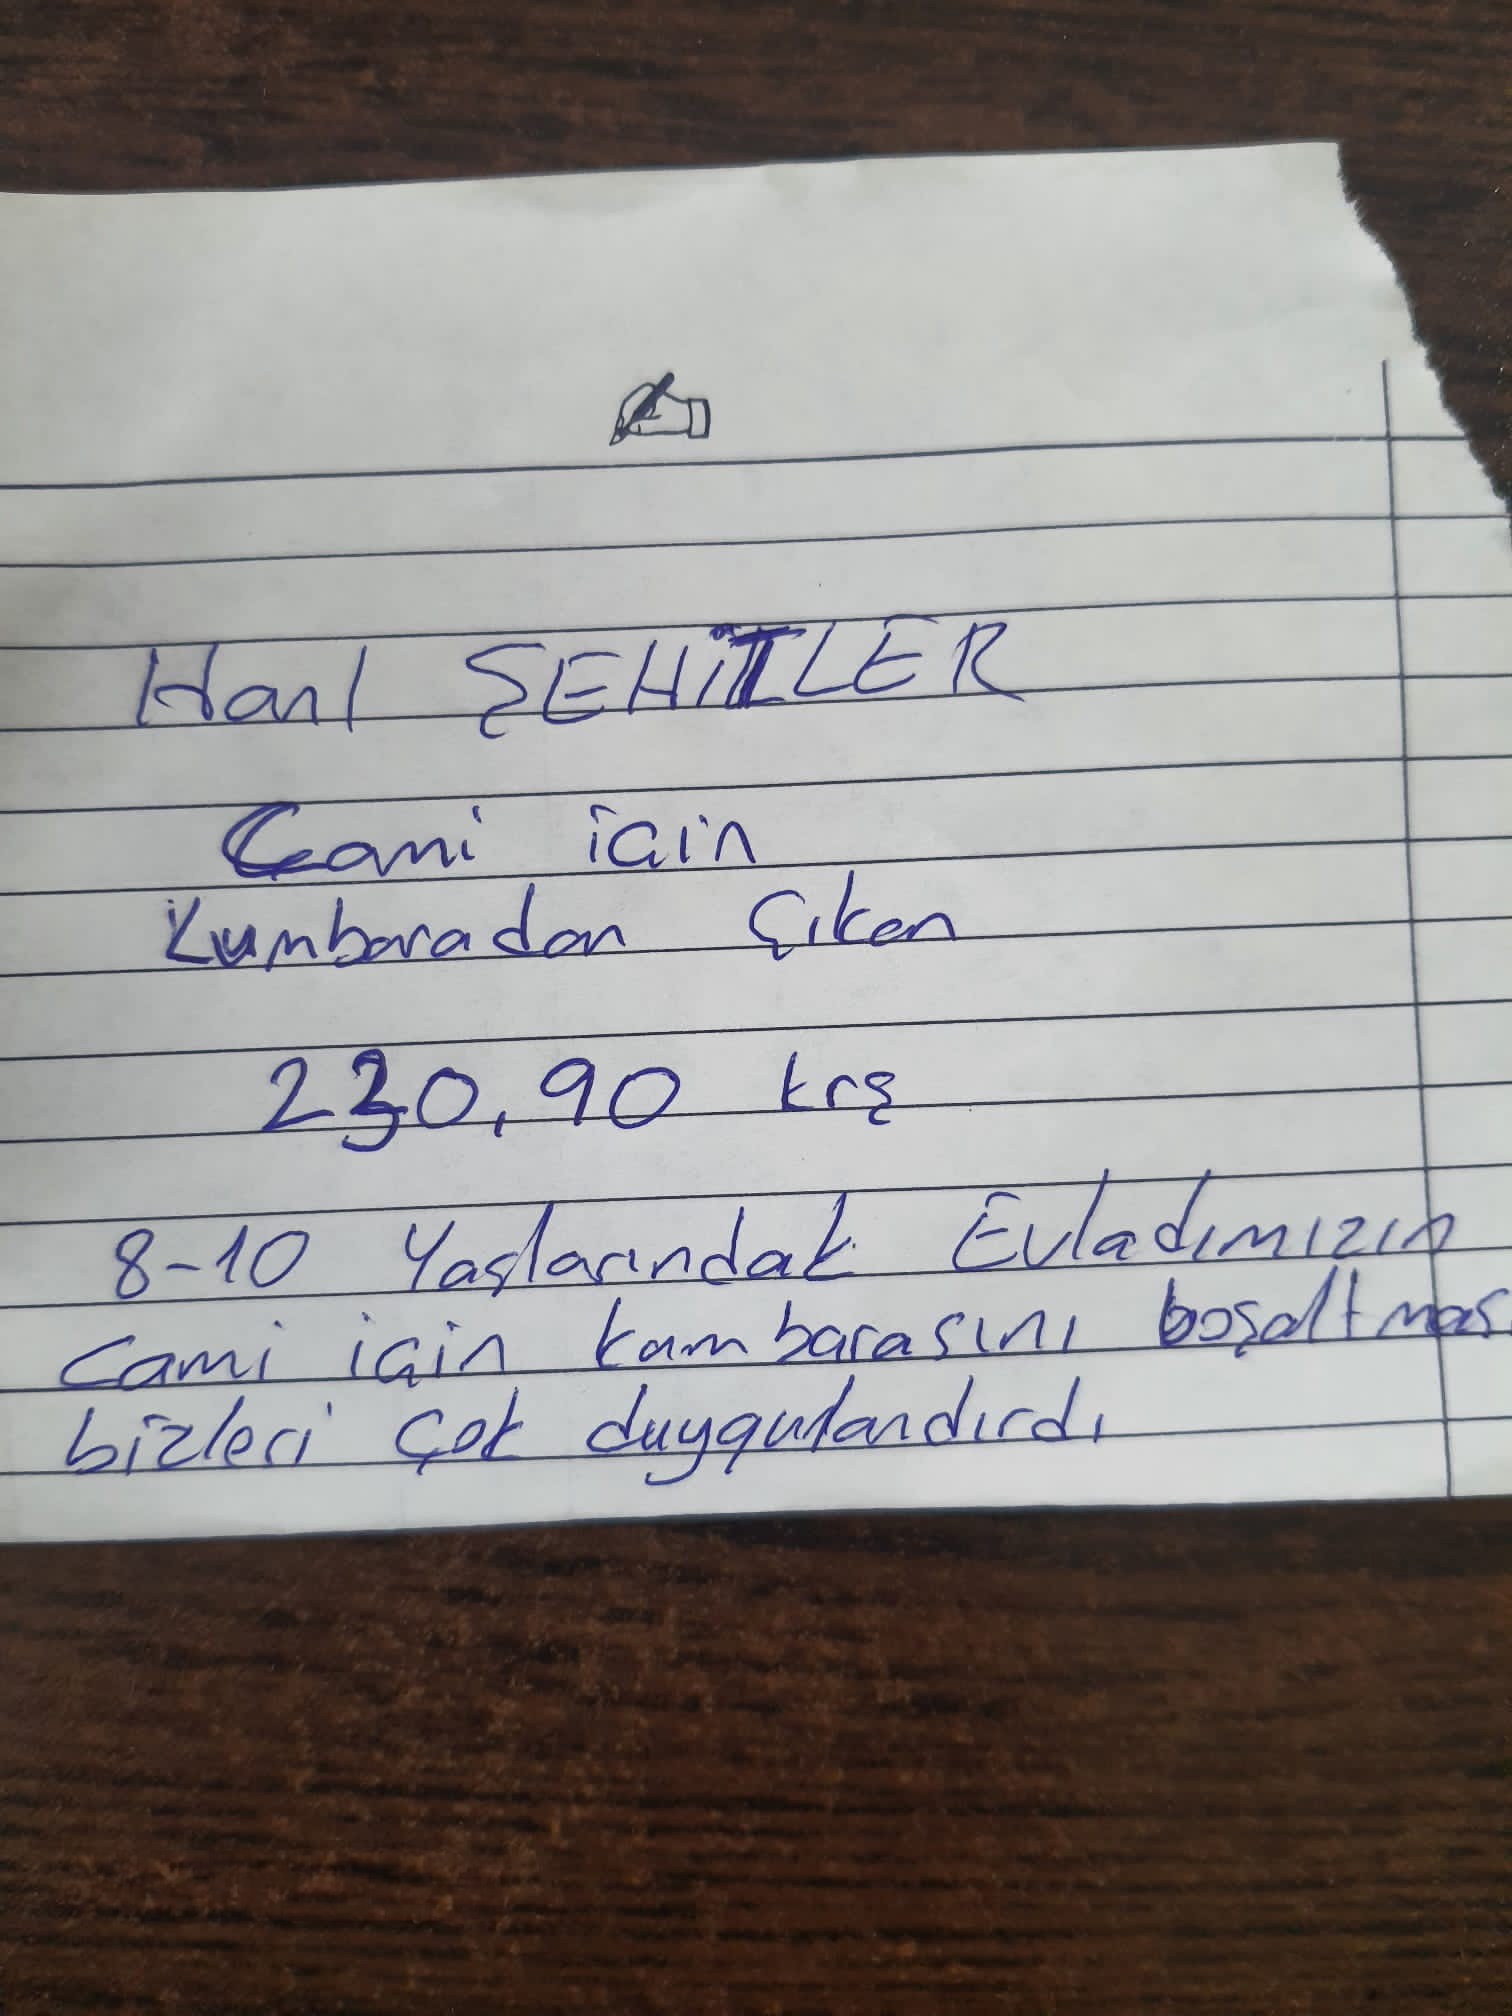 Hanl ŞEHİTLER
Cami için
Kumbaradan Çıkan
230,90 krş
8-10 Yaşlarındak Evladımızın
cami için kumbarasını boşaltması
bizleri çok duygulandırdı